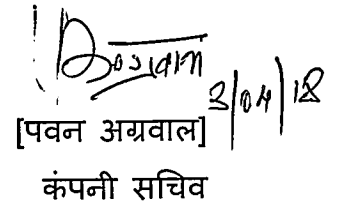 3/04/18
[पवन अग्रवाल]
कंपनी सचिव